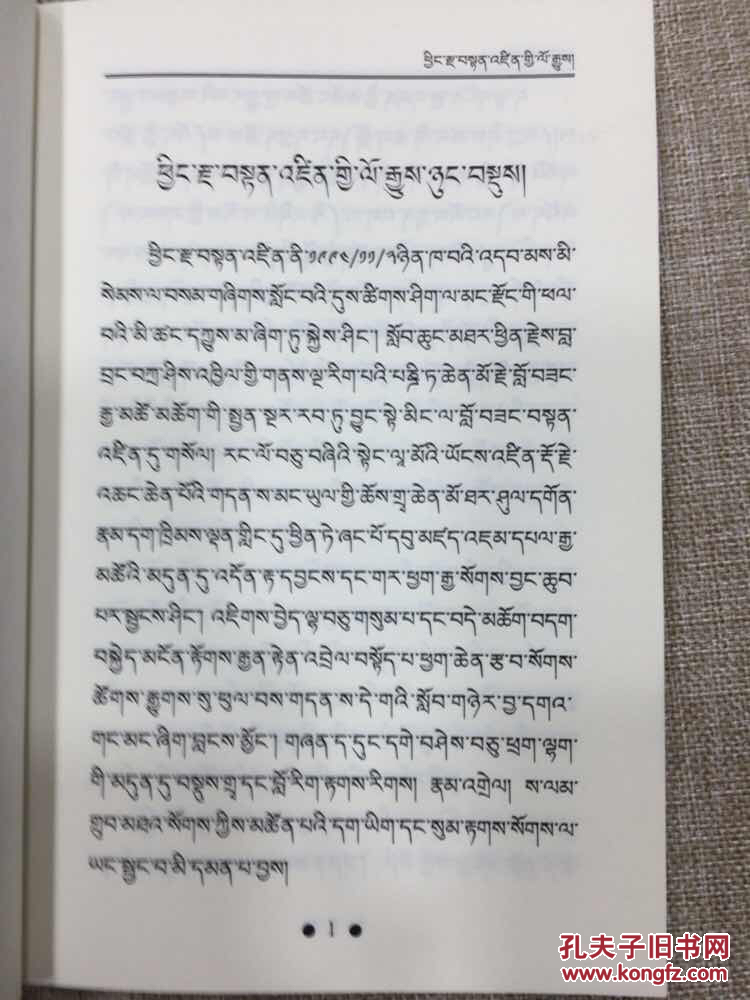 ཕྱིང་རྫ་བསྟན་འཛིན་གྱི་ལོ་རྒྱུས།
ཕྱིང་རྫ་བསྟན་འཛིན་གྱི་ལོ་རྒྱུས་ཉུང་བསྡུས།
ཕྱིང་རྫ་བསྟན་འཛིན་ནི་༡༩༩༤/༡༡/༢ཉིན་ཁ་བའི་འདབ་མས་མི་
སེམས་ལ་བསམ་གཞིགས་སློང་བའི་དུས་ཚིགས་ཤིག་ལ་མང་རྫོང་གི་ཕལ་
བའི་མི་ཚང་དཀྱུས་མ་ཞིག་ཏུ་སྐྱེས་ཤིང་། སློབ་ཆུང་མཐར་ཕྱིན་རྗེས་བླ་
བྲང་བཀྲ་ཤིས་འཁྱིལ་གྱི་གནས་ལྔ་རིག་པའི་པཎྜི་ཏ་ཆེན་མོ་རྗེ་བློ་བཟང་
རྒྱ་མཚོ་མཆོག་གི་སྤྱན་སྔར་རབ་ཏུ་བྱུང་སྟེ་མིང་ལ་བློ་བཟང་བསྟན་
འཛིན་དུ་གསོལ། རང་ལོ་བཅུ་བཞིའི་སྟེང་ལྭ་མོའི་ཡོངས་འཛིན་རྡོ་རྗེ་
འཆང་ཆེན་པོའི་གདན་ས་མང་ཡུལ་གྱི་ཆོས་གྲྭ་ཆེན་མོ་ཐར་ཤུལ་དགོན་
རྣམ་དག་ཁྲིམས་ལྡན་གླིང་དུ་ཕྱིན་ཏེ་ཞང་པོ་དབུ་མཛད་འཇམ་དཔལ་རྒྱ་
མཚོའི་མདུན་དུ་འདོན་རྟ་དབྱངས་དང་གར་ཕྱག་རྒྱ་སོགས་བྱང་ཆུབ་
པར་སྦྱངས་ཤིང་། འཇིགས་བྱེད་ལྷ་བཅུ་གསུམ་པ་དང་བདེ་མཆོག་བདག་
བསྐྱེད་མངོན་རྟོགས་རྒྱན་རྟེན་འབྲེལ་བསྟོད་པ་ཕྱག་ཆེན་རྩ་བ་སོགས་
ཚོགས་རྒྱུགས་སུ་ཕུལ་བས་གདན་ས་དེ་གའི་སློབ་གཉེར་བྱ་དགའ་
གང་མང་ཞིག་བླངས་མྱོང་། གཞན་ད་དུང་དགེ་བཤེས་བཅུ་ཕྲག་ལྷག་
གི་མདུན་དུ་བསྡུས་གྲྭ་དང་བློ་རིག་རྟགས་རིགས། རྣམ་འགྲེལ། ས་ལམ་
གྲུབ་མཐའ་སོགས་ཀྱིས་མཚོན་པའི་དག་ཡིག་དང་སུམ་རྟགས་སོགས་ལ་
ཡང་སྦྱང་བ་མི་དམན་པ་བྱས།
● 1 ●
孔夫子旧书网
kongfz.com